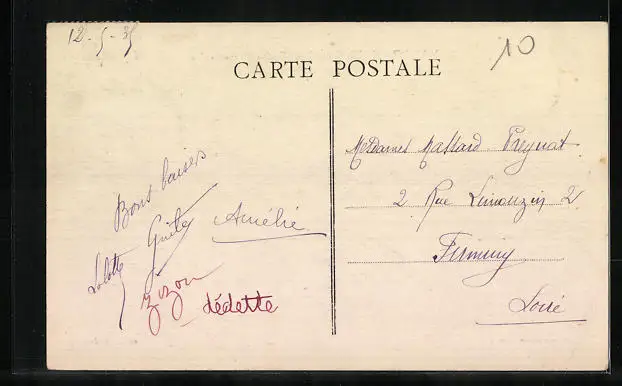 12-5-35
10
CARTE POSTALE
Bons baisers
Lolotte
Guité
Amélie
zizou
dédette
Mesdames Massard Preynat
2 Rue Limouzin 2
Firminy
Loire